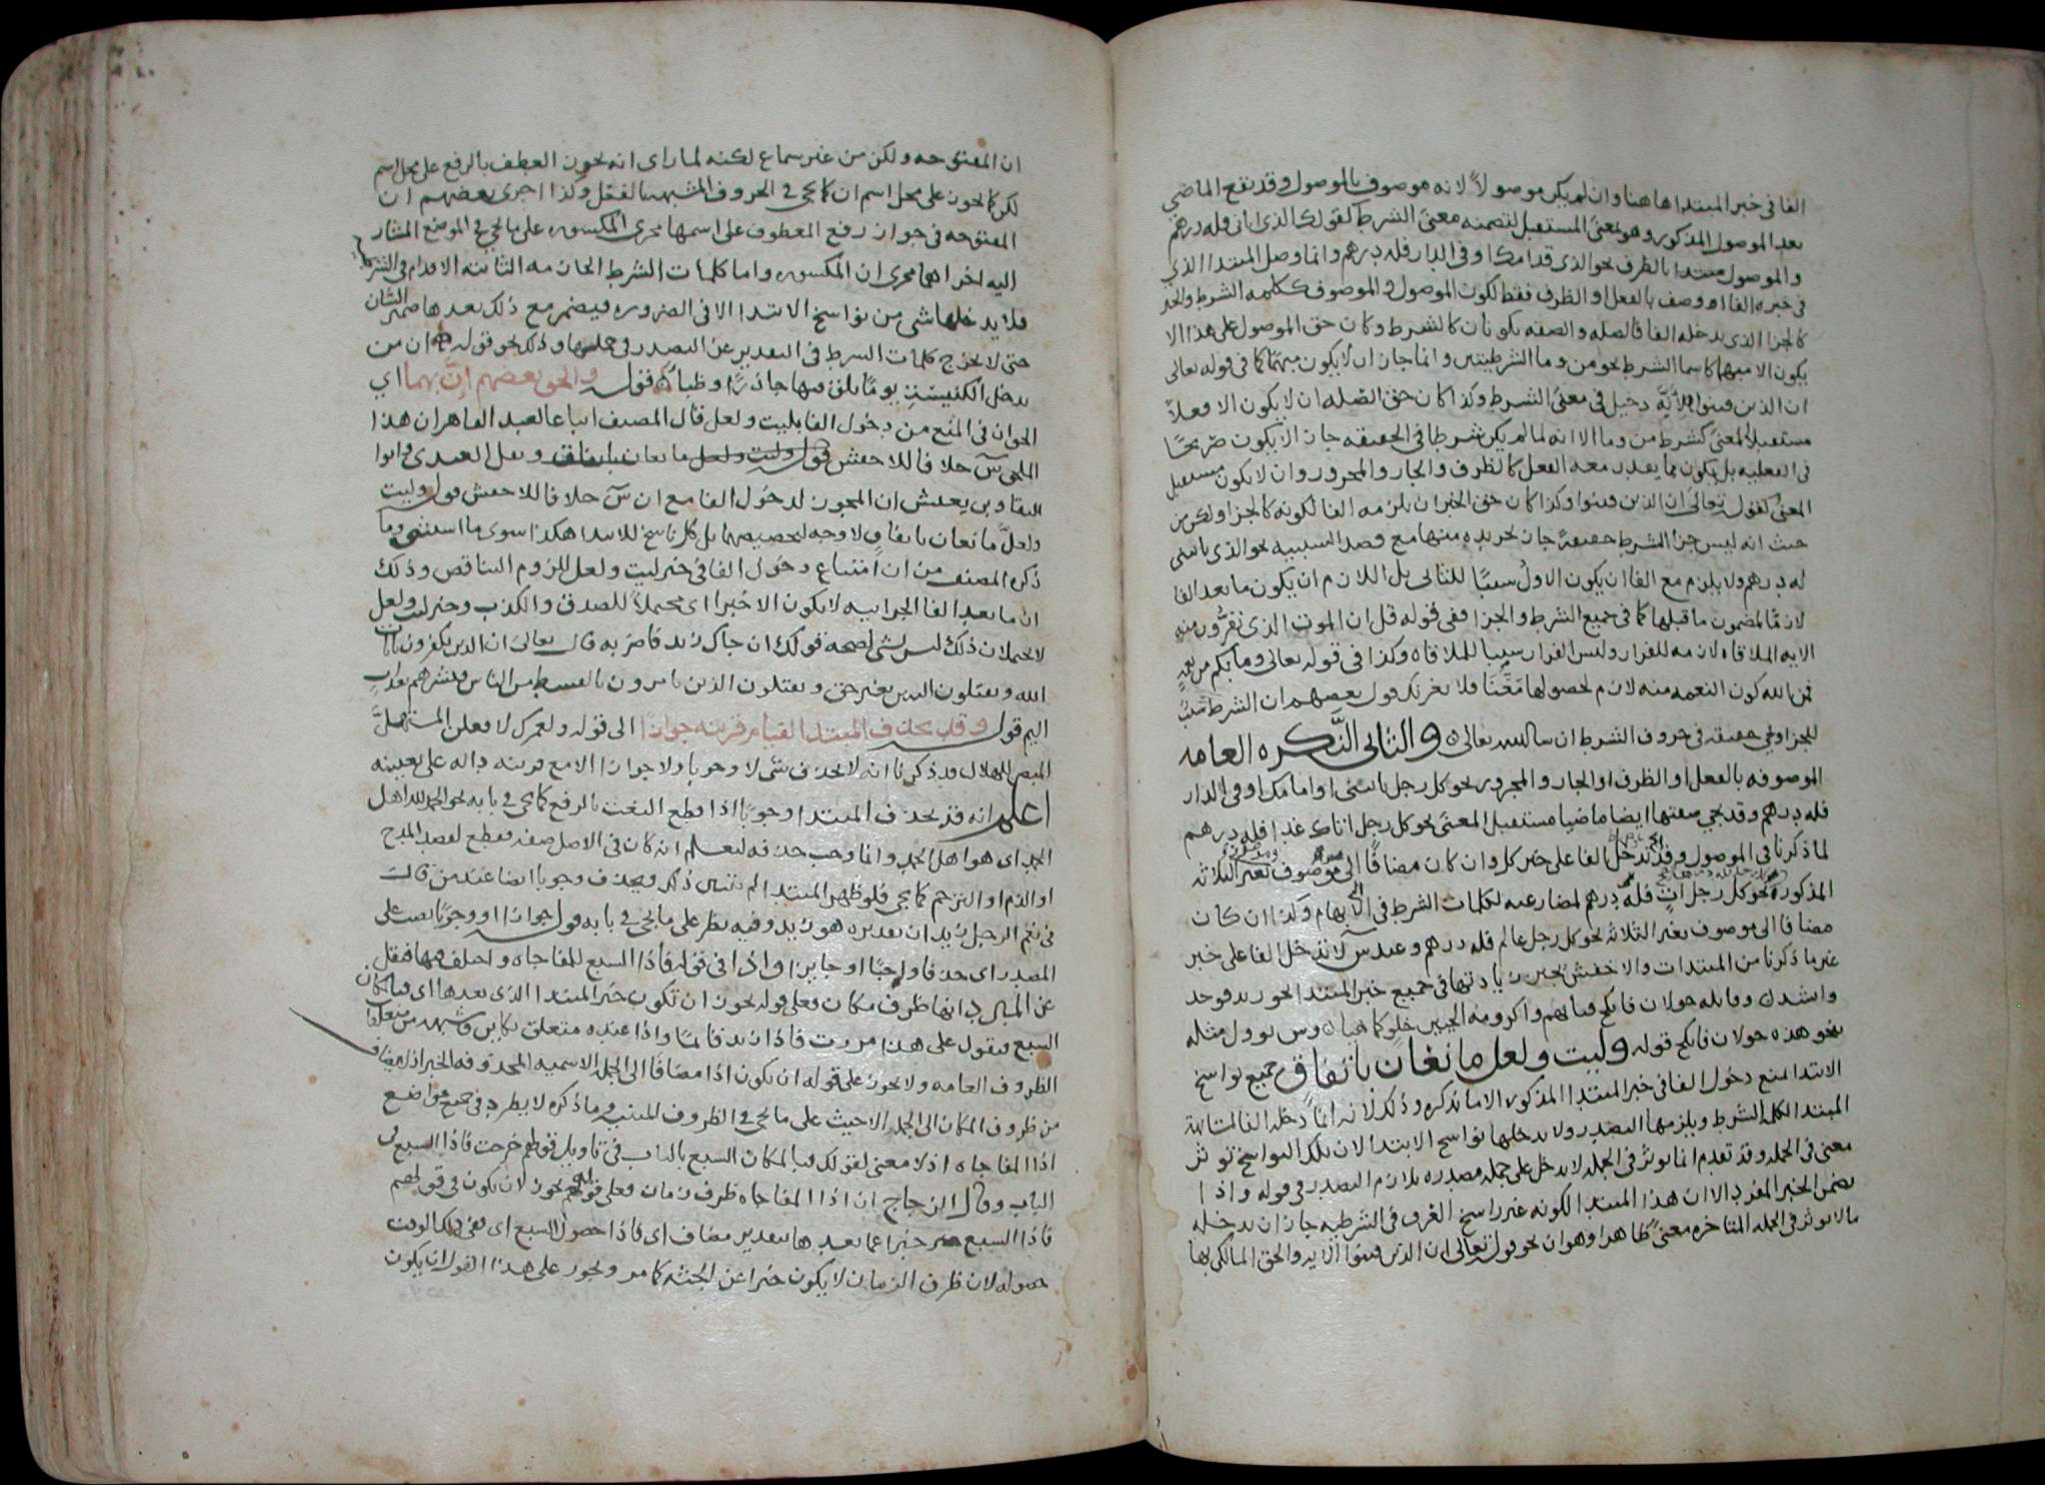 الفا في خبر المبتدا هاهنا وان لم يكن موصولاً لانه موصوف بالموصول وقد تقع الماضي
بعد الموصول المذكور وهو بمعنى المستقبل لتضمنه معنى الشرط كقولك الذي اتاني فله درهم
والموصول مبتدا بالظرف نحو الذي قدامك او في الدار فله درهم وانما وصل المبتدا الذي
في خبره الفا او وصف بالفعل او الظرف فقط لكون الموصول والموصوف ككلمه الشرط والخبر
كالجزا الذي يدخله الفا فالصله والصفه يكونان كالشرط وكان حق الموصول على هذا الا
يكون الا مبهما كاسما الشرط نحو من وما الشرطيتين وانما جاز ان لا يكون مبهما كما في قوله تعالى
ان الذين فتنوا الآيه دخيل في معنى الشرط وكذا كان حق الصله ان لا يكون الا فعلاً
مستقبل المعنى كشرط من وما الا انه لما لم يكن شرطا في الحقيقه جاز الا يكون صريحًا
في الفعليه بل يكون مما يقدر معه الفعل كالظرف والجار والمجرور وان لا يكون مستقبل
المعنى كقوله تعالى ان الذين فتنوا وكذا كان حق الخبر ان يلزمه الفا لكونه كالجزا ولكن من
حيث انه ليس جزا الشرط حقيقة جاز تجريده منها مع قصد السببيه نحو الذي ياتيني
له درهم ولا يلزم مع الفا ان يكون الاول سببًا للثاني بل اللازم ان يكون ما بعد الفا
لازمًا لمضمون ما قبلها كما في جميع الشرط والجزا ففي قوله قل ان الموت الذي تفرون منه
الايه الملاقاه لازمه للفرار وليس الفرار سببا للملاقاه وكذا في قوله تعالى وما بكم من نعمه
فمن الله كون النعمه منه لازم لحصولها معنا فلا يغرنك قول بعضهم ان الشرط سبب
للجزا ويجي تحقيقه في حروف الشرط ان شا الله تعالى والثاني النكره العامه
الموصوفه بالفعل او الظرف او الجار والمجرور نحو كل رجل ياتيني او امامك او في الدار
فله درهم وقد يجي صفتها ايضا ماضيا مستقبل المعنى نحو كل رجل اتاك غدا فله درهم
لما ذكرنا في الموصول وقد تدخل الفا على خبر كل وان كان مضافًا الى موصوف بغير الثلاثه
المذكوره نحو كل رجل فله درهم لمضارعته لكلمات الشرط في الابهام وكذا ان كان
مضافا الى موصوف بغير الثلاثه نحو كل رجل عالم فله درهم وعند س لا تدخل الفا على خبر
غير ما ذكرنا من المبتدات والاخفش يجيز زيادتها في جميع خبر المبتدا نحو زيد فوجد
وانشد وقائله خولان فانكح فتاتهم واكرومه الحيين خلو كما هيا وس يوول مثله
بنحو هذه خولان فانكح قوله وليت ولعل مانعان باتفاق جميع نواسخ
الابتدا تمنع دخول الفا في خبر المبتدا المذكور الا ما نذكره وذلك لانه انما دخله الفا لمشابهة
المبتدا لكلمه الشرط ويلزمها التصدر ولا يدخلها نواسخ الابتدا لان تلك النواسخ توثر
معنى في الجمله وقد تقدم انما يوثر في الجمله لا يدخل على جمله مصدره بلازم التصدر في قوله واذا
تضمن الخبر المفرد الا ان هذا المبتدا لكونه غير راسخ العرق في الشرطيه جاز ان يدخله
ما لا يوثر في الجمله المتاخره معنى ظاهرا وهو ان نحو قوله تعالى ان الذين فتنوا الايه والحق المالكي بها
ان المفتوحه ولكن من غير سماع لكنه لما راى انه يجوز العطف بالرفع على محل اسم
لكن كما يجوز على محل اسم ان كما يجي في الحروف المشبهه بالفعل وكذا اجرى بعضهم ان
المفتوحه في جواز رفع المعطوف على اسمها مجرى المكسوره على ما يجي في الموضع المشار
اليه اجراهما مجرى ان المكسوره واما كلمات الشرط الجازمه الثابته الاقدام في الشرطيه
فلا يدخلها شي من نواسخ الابتدا الا في الضروره فيضمر مع ذلك بعدها ضمير الشان
حتى لا تخرج كلمات الشرط في التقدير عن التصدر في جملتها وذلك نحو قوله ان من
يدخل الكنيسة يومًا يلق فيها جاذرًا وظباء قوله والحق بعضهم ان بهما اي
الحق ان في المنع من دخول الفا بليت ولعل قال المصنف اتباعا لعبد القاهر ان هذا
الملحق س خلافا للاخفش قوله وليت ولعل مانعان باتفاق ونقل العبدي وابو
البقا وبن يعيش ان المجوز لدخول الفا مع ان س خلافا للاخفش قوله وليت
ولعل مانعان باتفاق ولا وجه لتخصيصهما بل كل ناسخ للابتدا هكذا سوى ما استثنى وما
ذكره المصنف من ان امتناع دخول الفا في خبر ليت ولعل للزوم التناقض وذلك
ان ما بعد الفا الجزاييه لا يكون الا خبرا اي محتملاً للصدق والكذب وخبر ليت ولعل
لا يحتملان ذلك ليس بشي لصحه قولك ان جاك زيد فاضربه قال تعالى ان الذين يكفرون بايات
الله ويقتلون النبيين بغير حق ويقتلون الذين يامرون بالقسط من الناس فبشرهم بعذاب
اليم قوله وقد يحذف المبتدا لقيام قرينه جوازًا الى قوله ولعمرك لافعلن المستهل
المبصر الهلال قد ذكرنا انه لا يحذف شي لا وجوبا ولا جوازا الا مع قرينه داله على تعيينه
اعلم انه قد يحذف المبتدا وجوبًا اذا قطع النعت بالرفع كما يجي في بابه نحو الحمد لله اهل
الحمد اي هو اهل الحمد وانما وجب حذفه ليعلم انه كان في الاصل صفه فقطع لقصد المدح
او الذم او الترحم كما يجي فلو ظهر المبتدا لم يتبين ذلك ويحذف وجوبا ايضا عند من قال
في نعم الرجل زيد ان تقديره هو زيد وفيه نظر على ما يجي في بابه قوله جوازا او وجوبًا نصب على
المصدر اي حذفا واجبًا او جايزا واذا في قوله فاذا السبع للمفاجاه واختلف فيها فنقل
عن المبرد انها ظرف مكان فعلى قوله يجوز ان تكون خبر المبتدا الذي بعدها اي فبالمكان
السبع فتقول على هذا مررت فاذا زيد قائمًا واذا عنده متعلق بكاين وشبهه من متعلقات
الظروف العامه ولا يجوز على قوله ان يكون اذا مضافًا الى الجمله الاسميه المحذوفه الخبر اذ لا يضاف
من ظروف المكان الى الجمله الا حيث على ما يجي في الظروف المبنيه وما ذكره لا يطرد في جميع مواضع
اذا المفاجاه اذ لا معنى لقولك فبالمكان السبع بالباب في تاويل قولهم خرجت فاذا السبع
الباب وقال الزجاج ان اذا المفاجاه ظرف زمان فعلى قوله يجوز لان يكون في قولهم
فاذا السبع خبرا عما بعدها بتقدير مضاف اي فاذا حصول السبع اي ففي ذلك الوقت
حصوله لان ظرف الزمان لا يكون خبرا عن الجثه كما مر ويجوز على هذا القول ان يكون